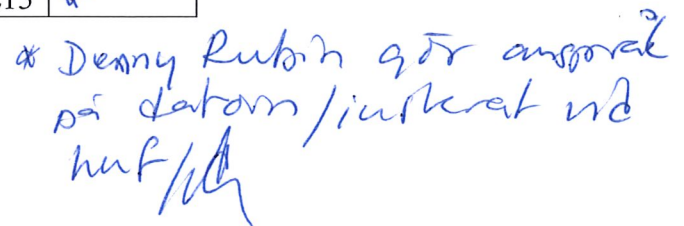 15
* Denny Rubin gör anspråk
på datorn/inskrat vid
huf/